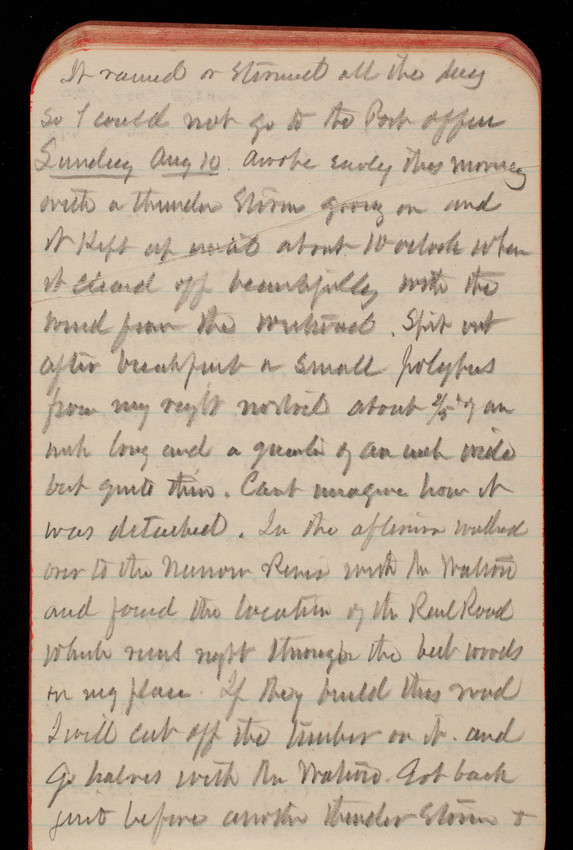 It rained or stormed all the day
so I could not go to the Post office
Sunday Aug 10. Awoke early this morning
with a thunder storm going on and
it kept up until about 10 oclock when
it cleard off beautifully with the
wind from the westward. Spit out
after breakfast a small polybus
from my right nostril about 2/5 of an
inch long and a quarter of an inch wide
but quite thin. Cant imagine how it
was detached. In the afternoon walked
over to the Narrow River with Mr Watson
and found the location of the Rail Road
which runs right through the best woods
on my place. If they build this road
I will cut off the timber on it. and
go halves with Mr Watson. Got back
just before another thunder storm &